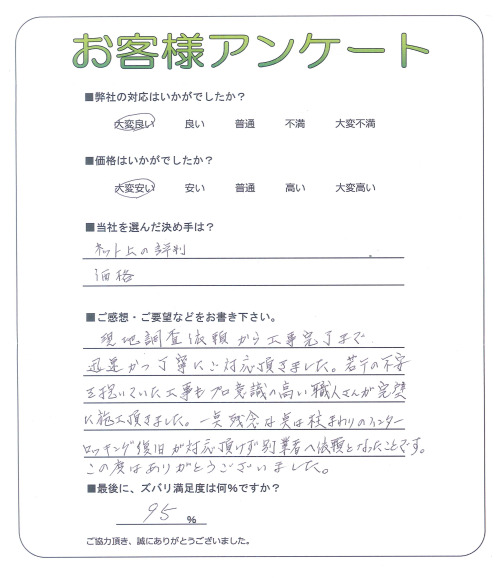 お客様アンケート
■弊社の対応はいかがでしたか？
大変良い 良い 普通 不満 大変不満
■価格はいかがでしたか？
大変安い 安い 普通 高い 大変高い
■当社を選んだ決め手は？
ネット上の評判
価格
■ご感想・ご要望などをお書き下さい。
現地調査依頼から工事完了まで
迅速かつ丁寧にご対応頂きました。若干の不安
を抱いていた工事もプロ意識の高い職人さんが完璧
に施工頂きました。一点残念な点は柱まわりのインター
ロッキング復旧が対応頂けず別業者へ依頼となったことです。
この度はありがとうございました。
■最後に、ズバリ満足度は何%ですか？
95 %
ご協力頂き、誠にありがとうございました。